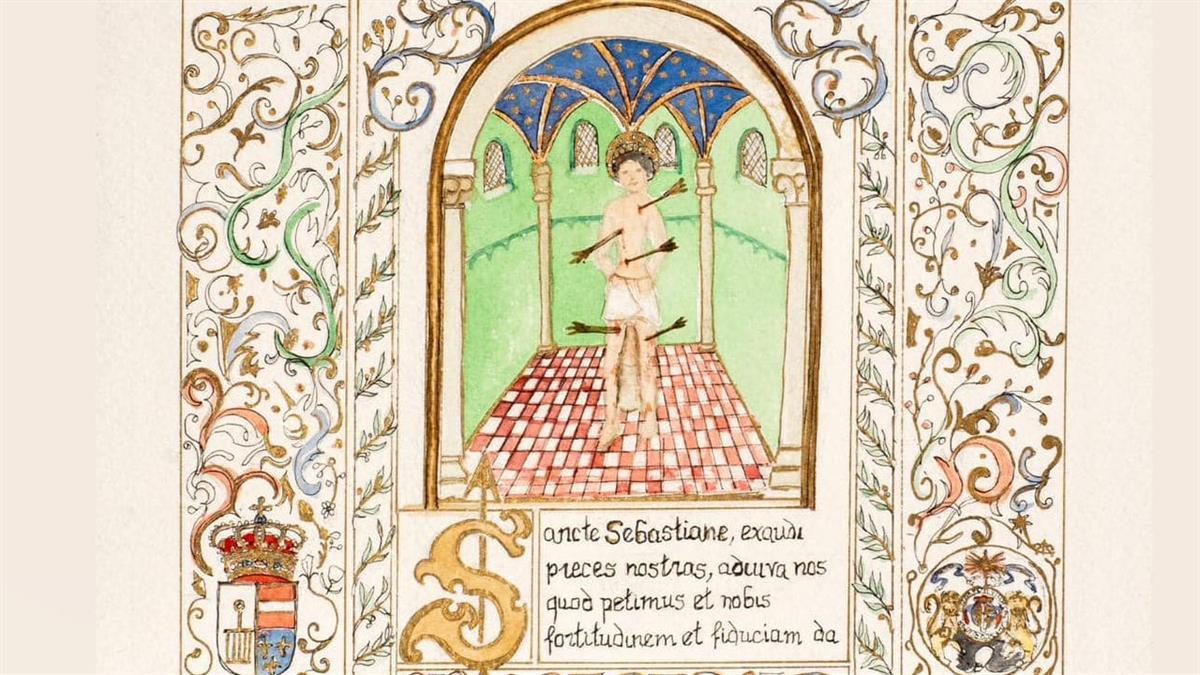 Sancte Sebastiane, exaudi
preces nostras, adiuva nos
quod petimus et nobis
fortitudinem et fiduciam da